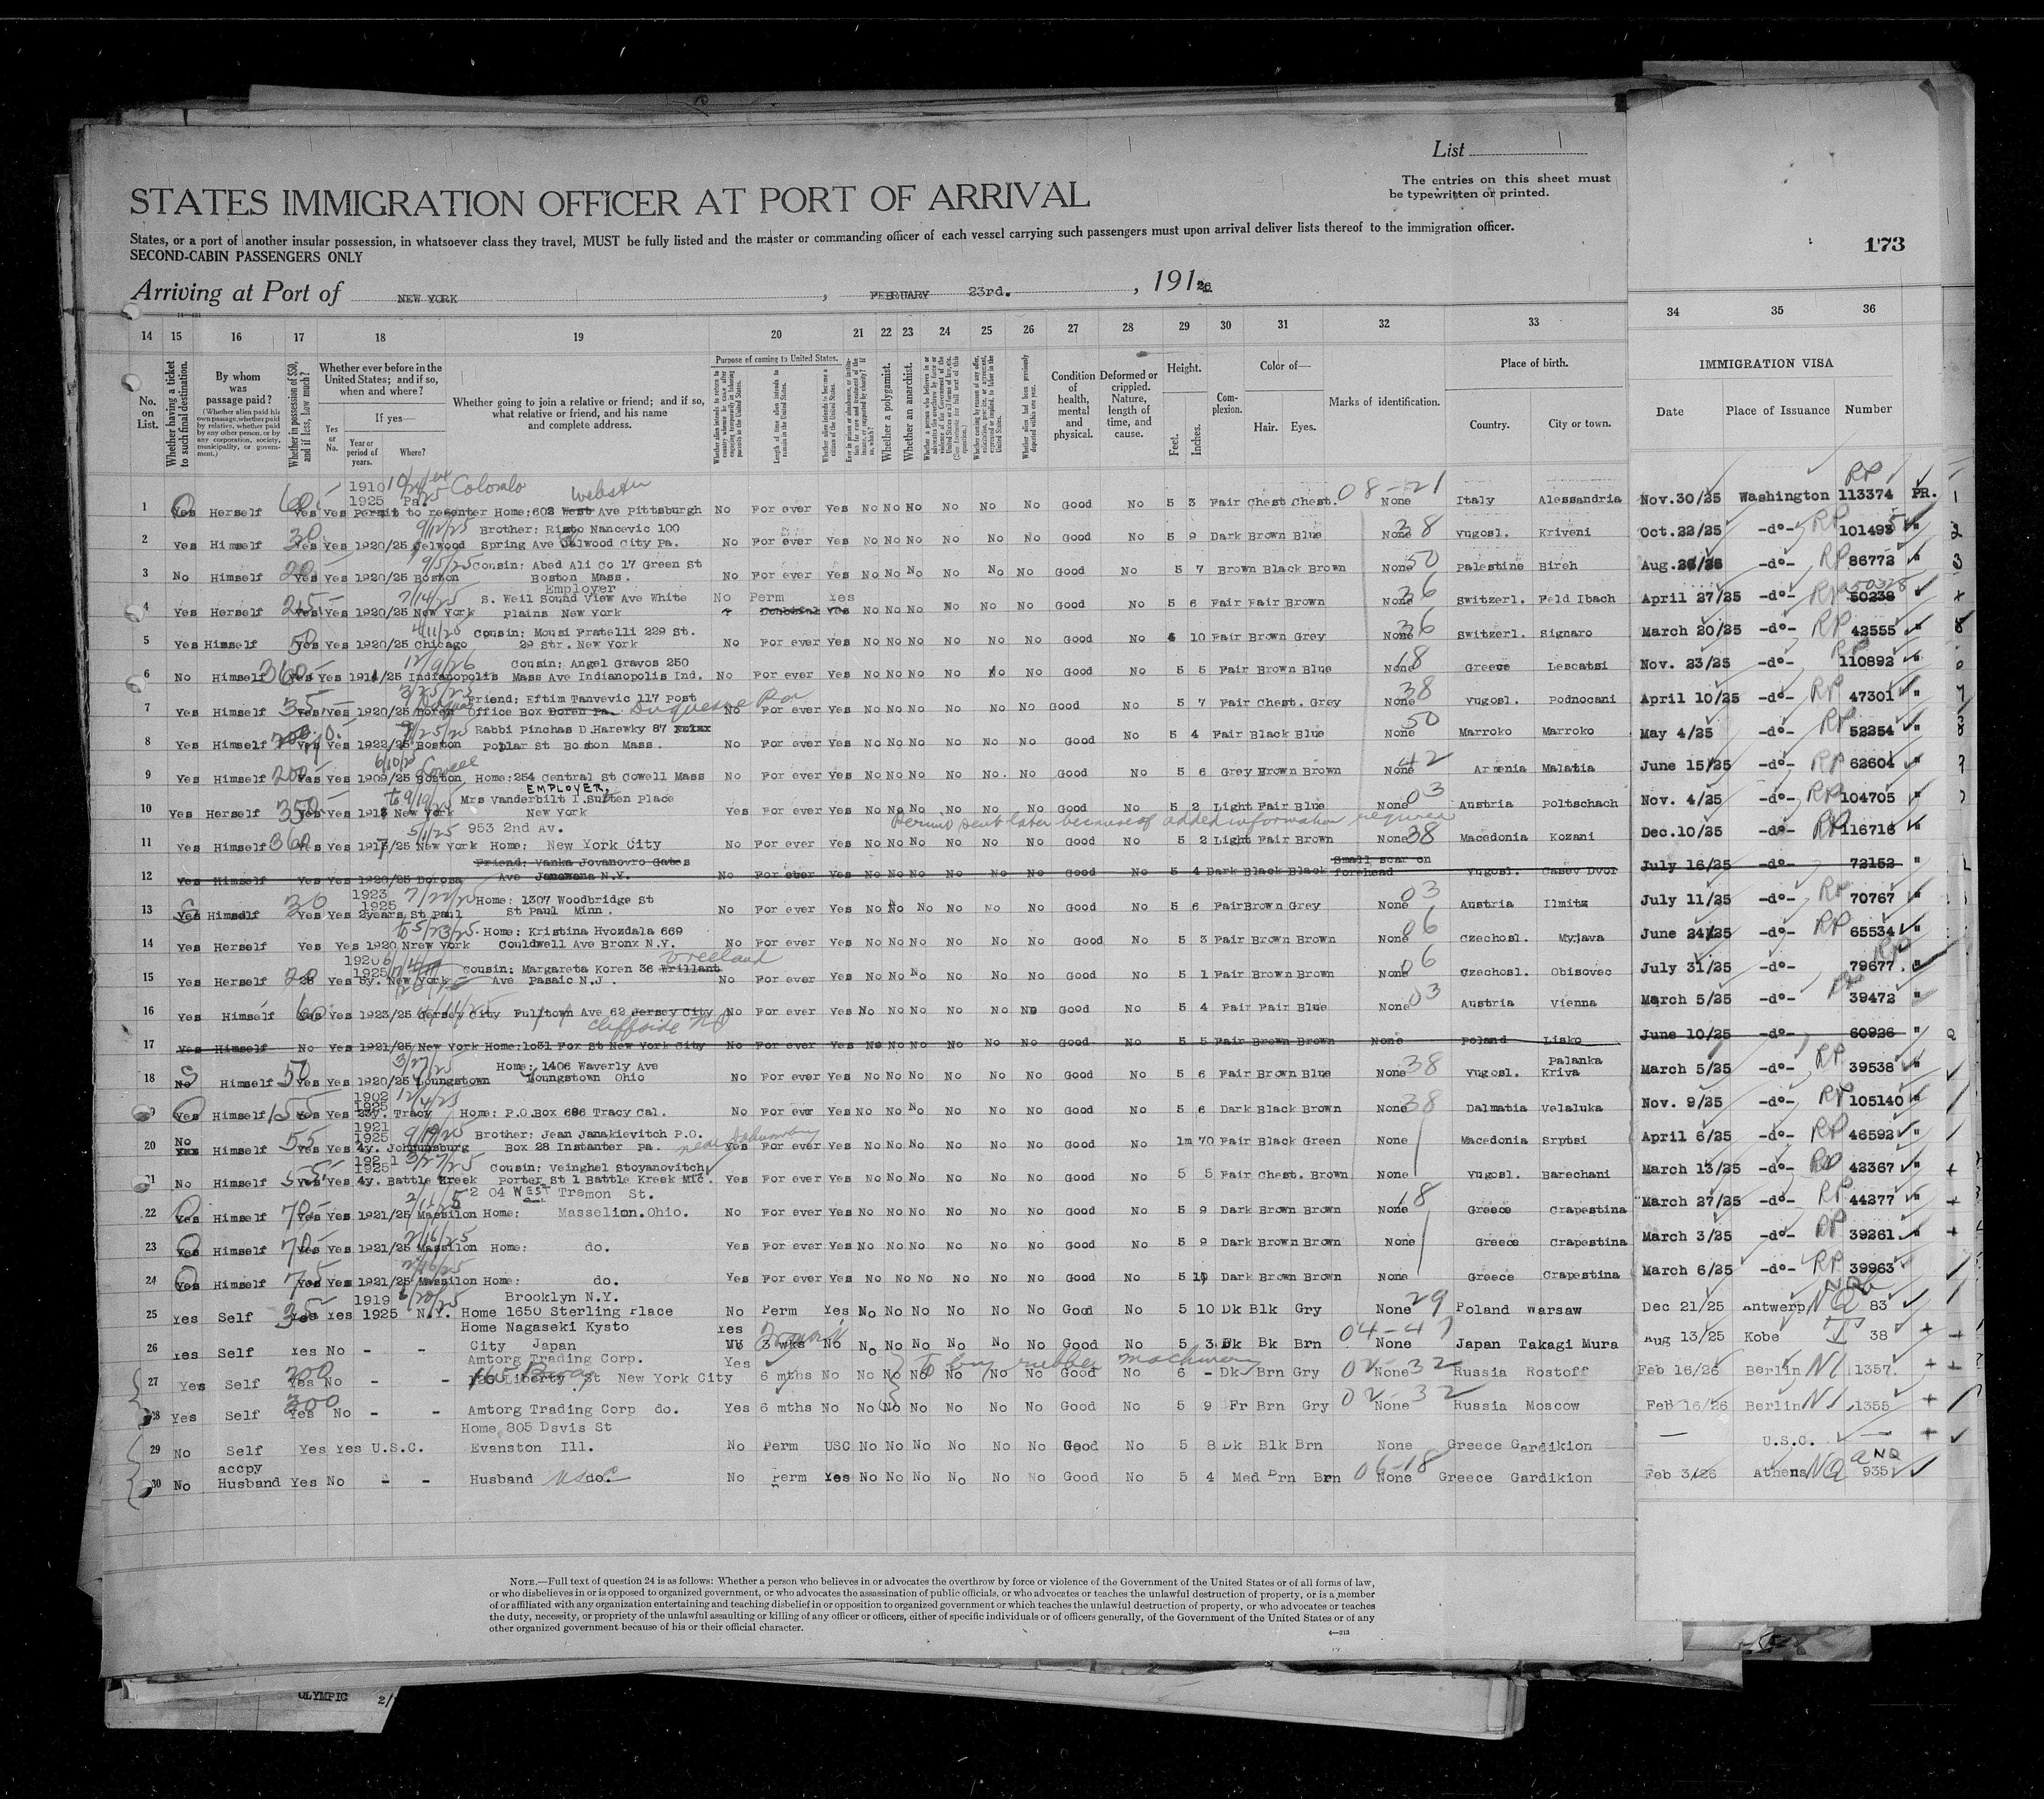 List
The entries on this sheet must
be typewritten or printed.
STATES IMMIGRATION OFFICER AT PORT OF ARRIVAL
States, or a port of another insular possession, in whatsoever class they travel, MUST be fully listed and the master or commanding officer of each vessel carrying such passengers must upon arrival deliver lists thereof to the immigration officer.
SECOND-CABIN PASSENGERS ONLY
173
Arriving at Port of NEW YORK , FEBRUARY 23rd. , 191 26
14 15 16 17 18 19 20 21 22 23 24 25 26 27 28 29 30 31 32 33 34 35 36
No. on List.
Whether having a ticket to such final destination.
By whom was passage paid?
(Whether alien paid his own passage, whether paid by relative, whether paid by any other person, or by any corporation, society, municipality, or government.)
Whether in possession of $50, and if less, how much?
Whether ever before in the United States; and if so, when and where?
Yes or No.
If yes—
Year or period of years.
Where?
Whether going to join a relative or friend; and if so, what relative or friend, and his name and complete address.
Purpose of coming to United States.
Length of time alien intends to remain in the United States.
Whether alien intends to become a citizen of the United States.
Whether a polygamist.
Whether an anarchist.
Condition of health, mental and physical.
Deformed or crippled. Nature, length of time, and cause.
Height.
Feet. Inches.
Complexion.
Color of—
Hair. Eyes.
Marks of identification.
Place of birth.
Country. City or town.
IMMIGRATION VISA
Date Place of Issuance Number
1910 10/24/24 Colorado Webster
1925 Pa.
1 Yes Herself Yes Yes Permit to reenter Home:602 West Ave Pittsburgh No For ever Yes No No No No No No Good No 5 3 Fair Chest Chest. None 08-21 Italy Alessandria Nov.30/25 Washington RP 113374 PR. 1
9/12/25 Brother: Risto Nancevic 100
2 Yes Himself 30 Yes Yes 1920/25 Spring Ave City Pa. No For ever Yes No No No No No No Good No 5 9 Dark Brown Blue None 38 Yugosl. Kriveni Oct.22/25 -do- RP 101495 " 2
9/5/25 Cousin: Abed Ali Co 17 Green St
3 No Himself 20 Yes Yes 1920/25 Boston Boston Mass. No For ever Yes No No No No No No Good No 5 7 Brown Black Brown None 50 Palestine Bireh -do- RP 86772 " 3
Employer
7/14/25 S. Weil Sound View Ave White No Perm Yes
4 Yes Herself 25 Yes 1920/25 New York Plains New York Doubtful Yes No No No No No No Good No 5 6 Fair Fair Brown None 36 Switzerl. Feld Ibach April 27/25 -do- RP 50328 50238
4/11/25 Cousin: Mousi Fratelli 229 St.
5 Yes Himself 50 Yes Yes 1920/25 Chicago 29 Str. New York No For ever Yes No No No No No No Good No 10 Fair Brown Grey None 36 Switzerl. Signaro March 20/25 -do- RP 42555 "
12/9/25 Cousin: Angel Gravos 250
6 No Himself 360 Yes Yes 1914/25 Indianapolis Mass Ave Indianapolis Ind. No For ever Yes No No No No No No Good No 5 5 Fair Brown Blue None 18 Greece Lescatsi Nov. 23/25 -do- RP 110892 "
Friend: Eftim Tanvevic 117 Post
7 Yes Himself 35 Yes Yes 1920/25 Office Box Doren Pa. Duquesne Pa No For ever Yes No No No No No No Good 5 7 Fair Chest. Grey None 38 Yugosl. Podnocani April 10/25 -do- RP 47301 "
Rabbi Pinchas D.Harewky 87
8 Yes Himself 200 Yes Yes 1922/25 Boston Poplar St Boston Mass. No For ever Yes No No No No No No Good No 5 4 Fair Black Blue None 50 Marroko Marroko May 4/25 -do- RP 52254 "
6/10/25 Lowell
9 Yes Himself 200 Yes Yes 1909/25 Boston Home:254 Central St Cowell Mass No For ever Yes No No No No No. No Good No 5 6 Grey Brown Brown None 42 Armenia Malatia June 15/25 -do- RP 62604 "
EMPLOYER.
to 9/19/25 Mrs Vanderbilt I.Sutten Place
10 Yes Herself 350 Yes Yes New York New York Yes For ever Yes No No No No No No Good No 5 2 Light Fair Blue None 03 Austria Poltschach Nov. 4/25 -do- RP 104705 "
Permit sent later because of added information required
5/1/25 953 2nd Av.
11 Yes Himself 360 Yes Yes New York Home: New York City No For ever Yes No No No No No No Good No 5 2 Light Fair Brown None 38 Macedonia Kozani Dec.10/25 -do- RP 116716 "
Friend: Vanka Jovanovro Gates Small scar on
12 Yes Himself Yes Yes 1920/25 Dorosa Ave Janewana N.Y. No For ever Yes No No No No No No Good No 5 4 Dark Black Black forehead Yugosl. Casev Dvor July 16/25 -do- 72152 "
1923 7/22/25 Home: 1307 Woodbridge St
1925
13 Yes Himself 30 Yes Yes 2years St Paul St Paul Minn. No For ever Yes No No No No No No Good No 5 6 Fair Brown Grey None 03 Austria Ilmitz July 11/25 -do- RP 70767 "
to 5/23/25 Home: Kristina Hvozdala 669
14 Yes Herself Yes Yes 1920 Nrew York Couldwell Ave Bronx N.Y. No For ever Yes No No No No No No Good No 5 3 Fair Brown Brown None 06 Czechosl. Myjava June 24/25 -do- RP 65534 "
1920 Vreeland
1925 Cousin: Margareta Koren 36 Wrillant
15 Yes Herself Yes 5y. New York Ave Pasaic N.J. No For ever Yes No No No No No No Good No 5 1 Fair Brown Brown None 06 Czechosl. Obisovec July 31/25 -do- RP 79677
16 Yes Himself 60 Yes Yes 1923/25 Jersey City Fulltown Ave 62 Jersey City No For ever Yes No No No No No No No Good No 5 4 Fair Fair Blue None 03 Austria Vienna March 5/25 -do- RP 39472 "
Cliffside NJ
17 Yes Himself No Yes 1921/25 New York Home:1031 Fox St New York City No For ever Yes No No No No No No Good No 5 5 Fair Brown Brown None Poland Lisko June 10/25 -do- 60926 "
3/27/25 Home: 1406 Waverly Ave Palanka
18 No Himself 50 Yes Yes 1920/25 Loungstown Youngstown Ohio No For ever Yes No No No No No No Good No 5 6 Fair Brown Blue None 38 Yugosl. Kriva March 5/25 -do- RP 39538 "
1902 12/4/25
1925
19 Yes Himself 155 Yes Yes 23y. Tracy Home: P.O.Box 686 Tracy Cal. No For ever Yes No No No No No No Good No 5 6 Dark Black Brown None 38 Dalmatia Velaluka Nov. 9/25 -do- RP 105140 "
1921
No 1925 9/19/25 Brother: Jean Janakievitch P.O. near Johnsonburg
20 Yes Himself 55 Yes Yes 4y. Johnunsburg Box 28 Instanter Pa. Yes For ever Yes No No No No No No Good No 1m 70 Fair Black Green None Macedonia Srptsi April 6/25 -do- RP 46592 "
1921 3/27/25
1925 Cousin: Veinghel Stoyanovitch
21 No Himself 55 Yes Yes 4y. Battle Kreek Porter St 1 Battle Kreek Mic. Yes For ever Yes No No No No No No Good No 5 5 Fair Chest. Brown None Yugosl. Barechani March 13/25 -do- RP 42367 "
2 04 WEST Tremon St.
22 Yes Himself 70 Yes Yes 1921/25 Massilon Home: Masselion.Ohio. No For ever Yes No No No No No No Good No 5 9 Dark Brown Brown None 18 Greece Crapestina March 27/25 -do- RP 44277 "
2/16/25
23 Yes Himself 70 Yes Yes 1921/25 Massilon Home: do. Yes For ever Yes No No No No No No Good No 5 9 Dark Brown Brown None Greece Crapestina March 3/25 -do- RP 39261 "
2/16/25
24 Yes Himself 75 Yes Yes 1921/25 Massilon Home: do. Yes For ever Yes No No No No No No Good No 5 10 Dark Brown Brown None Greece Crapestina March 6/25 -do- RP 39963 "
1919 Brooklyn N.Y.
25 Yes Self 35 Yes Yes 1925 N.Y. Home 1650 Sterling Place No Perm Yes No No No No No No Good No 5 10 Dk Blk Gry None 29 Poland Warsaw Dec 21/25 Antwerp NQ 83
Home Nagaseki Kysto Yes
26 Yes Self Yes No - - City Japan 3 wks No No No No No No No Good No 5 3 Dk Bk Brn None 04-47 Japan Takagi Mura Aug 13/25 Kobe 38
Amtorg Trading Corp. Yes to buy rubber machinery
27 Yes Self 200 Yes No - - Liberty St New York City 6 mths No No No No No No No Good No 6 - Dk Brn Gry None 02-32 Russia Rostoff Feb 16/26 Berlin 1357
28 Yes Self 300 Yes No - - Amtorg Trading Corp do. Yes 6 mths No No No No No No No Good No 5 9 Fr Brn Gry None 02-32 Russia Moscow Feb 16/26 Berlin 1355
Home 805 Davis St
29 No Self Yes Yes U.S.C. Evanston Ill. No Perm USC No No No No No No Good No 5 8 Dk Blk Brn None Greece Gardikion — U.S.C. —
accpy
30 No Husband Yes No - - Husband do. No Perm Yes No No No No No No Good No 5 4 Med Brn Brn None 06-18 Greece Gardikion Feb 3/26 Athens NQ 935
NOTE.—Full text of question 24 is as follows: Whether a person who believes in or advocates the overthrow by force or violence of the Government of the United States or of all forms of law,
or who disbelieves in or is opposed to organized government, or who advocates the assassination of public officials, or who advocates or teaches the unlawful destruction of property, or is a member
of or affiliated with any organization entertaining and teaching disbelief in or opposition to organized government or which teaches the unlawful destruction of property, or who advocates or teaches
the duty, necessity, or propriety of the unlawful assaulting or killing of any officer or officers, either of specific individuals or of officers generally, of the Government of the United States or of any
other organized government because of his or their official character.
4—213
OLYMPIC 2/